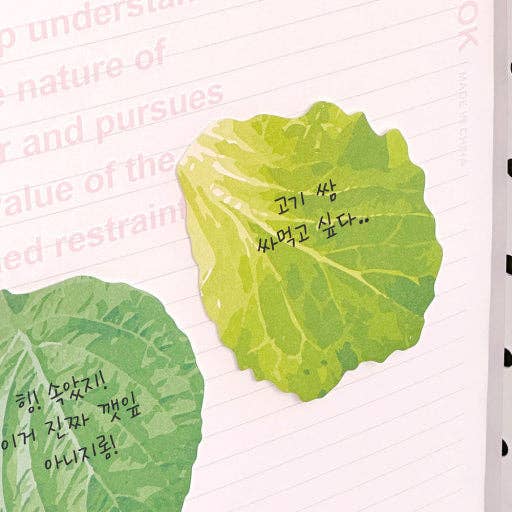 p understand
e nature of
r and pursues
value of the
ed restraint
OK | MADE IN CHINA
고기 쌈
싸먹고 싶다..
헹! 속았지!
이거 진짜 깻잎
아니지롱!